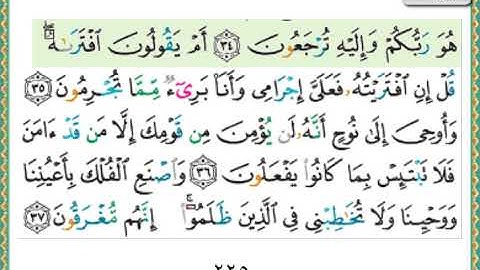 هُوَ رَبُّكُمْ وَإِلَيْهِ تُرْجَعُونَ ﴿٣٤﴾ أَمْ يَقُولُونَ ٱفْتَرَىٰهُ ۖ
قُلْ إِنِ ٱفْتَرَيْتُهُۥ فَعَلَىَّ إِجْرَامِى وَأَنَا۠ بَرِىٓءٌ مِّمَّا تُجْرِمُونَ ﴿٣٥﴾
وَأُوحِىَ إِلَىٰ نُوحٍ أَنَّهُۥ لَن يُؤْمِنَ مِن قَوْمِكَ إِلَّا مَن قَدْ ءَامَنَ
فَلَا تَبْتَئِسْ بِمَا كَانُوا۟ يَفْعَلُونَ ﴿٣٦﴾ وَٱصْنَعِ ٱلْفُلْكَ بِأَعْيُنِنَا
وَوَحْيِنَا وَلَا تُخَٰطِبْنِى فِى ٱلَّذِينَ ظَلَمُوٓا۟ ۚ إِنَّهُم مُّغْرَقُونَ ﴿٣٧﴾
٢٢٥